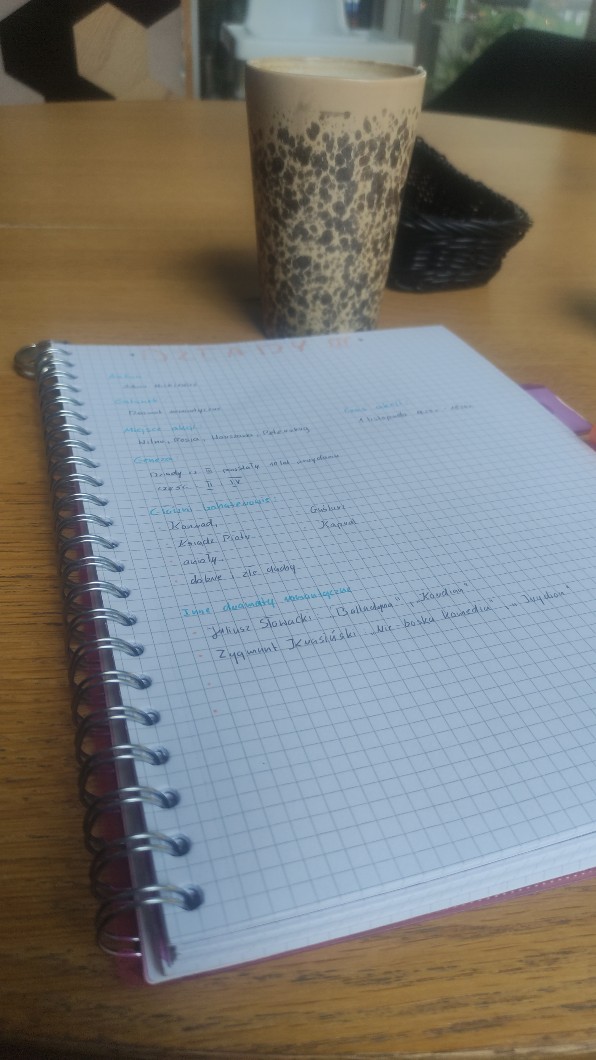 DZIADY CZ III
Autor
Adam Mickiewicz
Gatunek
Dramat romantyczny
Miejsce akcji
Czas akcji
Wilno, Rosja, Warszawa, Petersburg
1 listopada
Geneza
Dziady cz III powstały
część II i IV
Główni bohaterowie
Konrad, Guślarz
Ksiądz Piotr Kapral
anioły
dobre i złe duchy
Inne dramaty romantyczne
- Juliusz Słowacki "Balladyna", "Kordian"
- Zygmunt Krasiński "Nie-boska komedia", "Irydion"